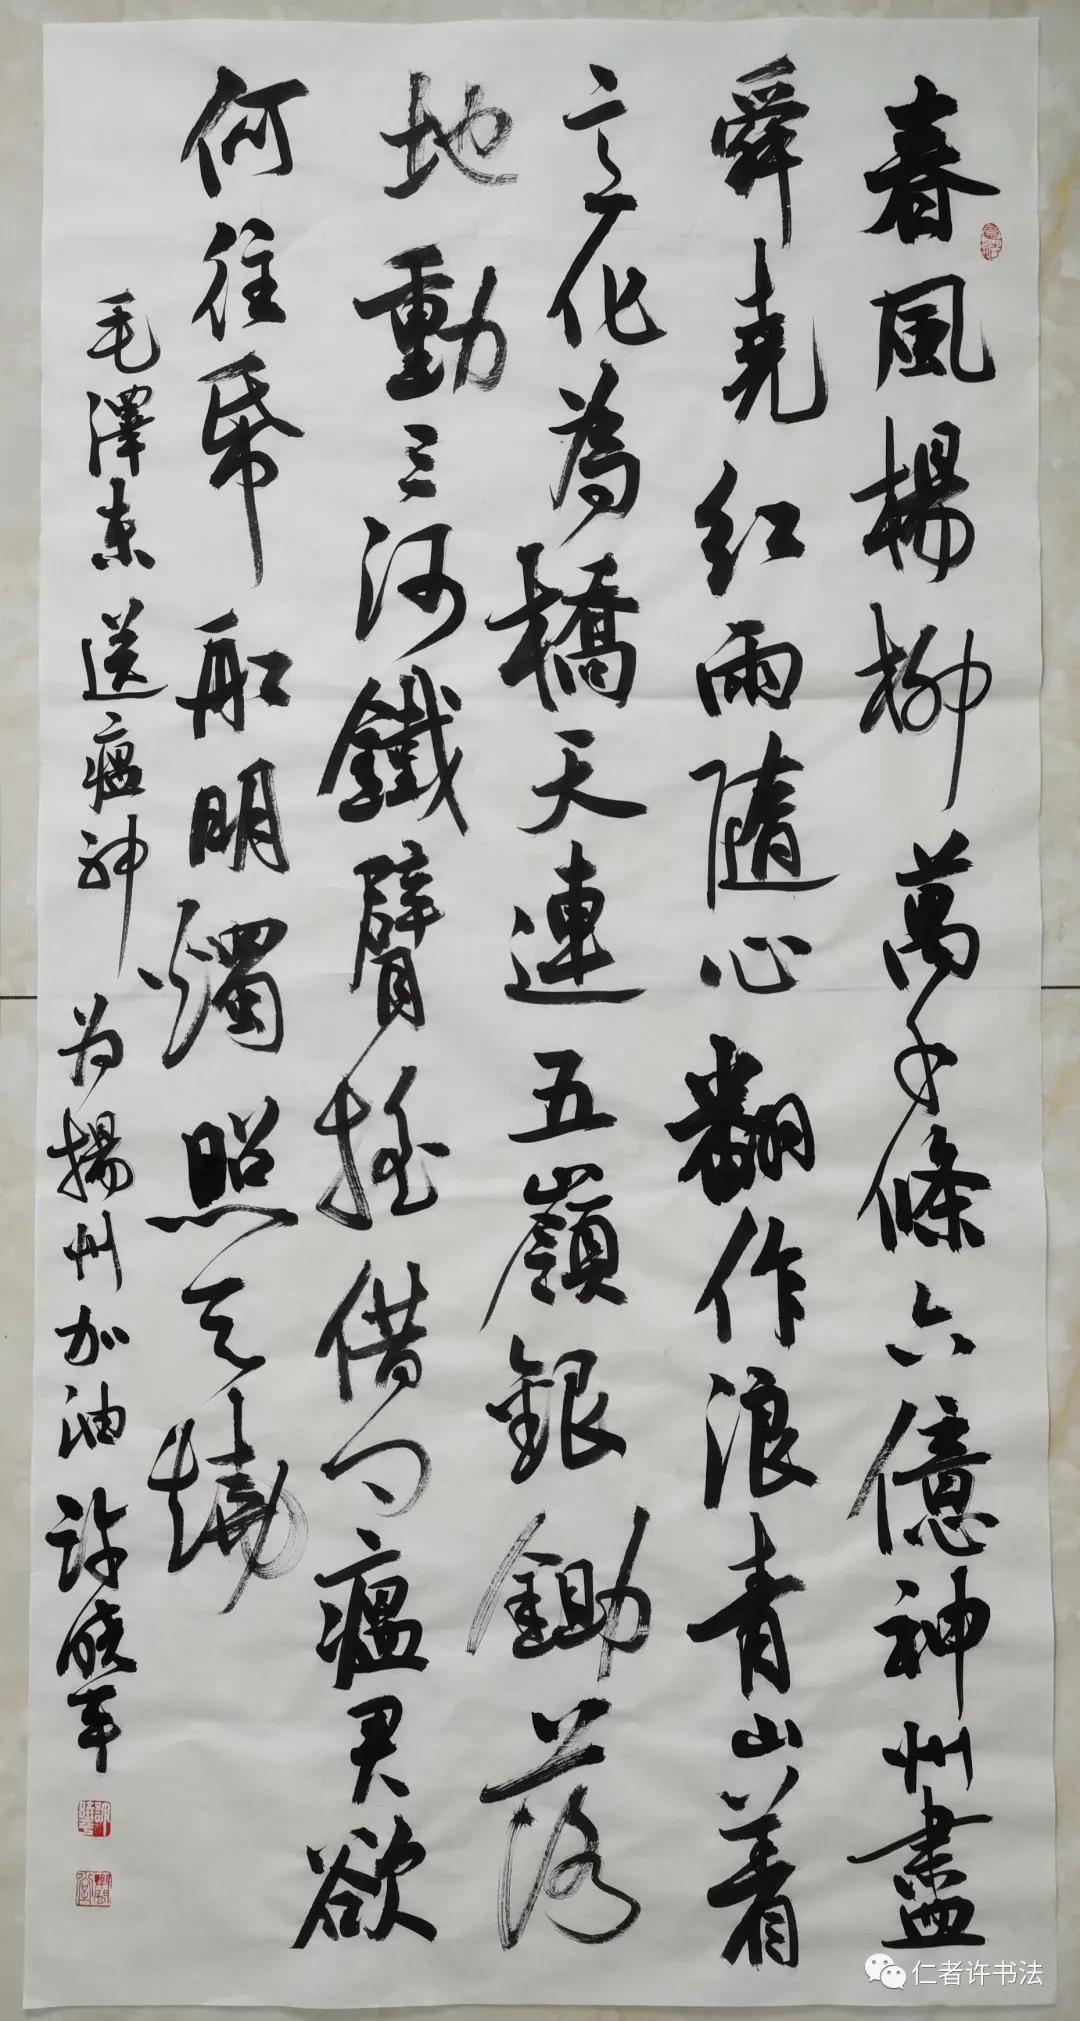 春風楊柳萬千條六億神州盡
舜堯红雨隨心翻作浪青山着
意化為橋天連五嶺銀鋤落
地動三河鐵臂搖借问瘟君欲
何往紙船明燭照天燒
毛澤东送瘟神 为揚州加油 許晓军
仁者许书法